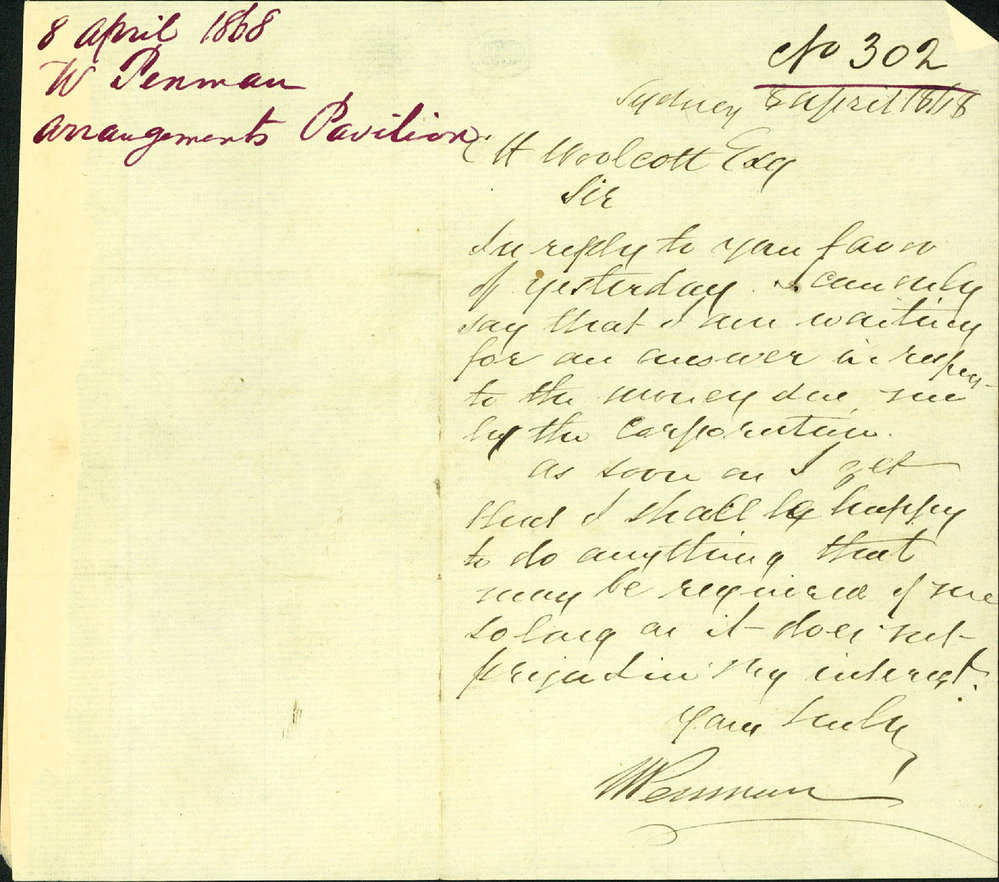 8 April 1868
W Penman
Arrangements Pavilion
No 302
Sydney 8 April 1868
C H Woolcott Esq
Sir
In reply to your favor
of yesterday. I can only
say that I am waiting
for an answer in respect
to the money due me
by the Corporation.
As soon as I get
that I shall be happy
to do anything that
may be required of me
so long as it does not
prejudice my interest.
Yours truly
W Penman